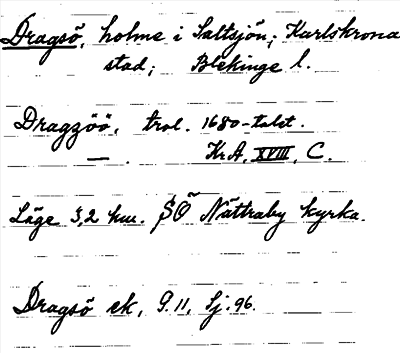 Dragsö, holme i Saltsjön; Karlskrona
stad; Blekinge l.
Dragzöö, trol. 1680-talet.
— . KrA, XVIII, C.
Läge 3,2 km. SO Nättraby kyrka.
Dragsö ek, 9.11, Sj. 96.